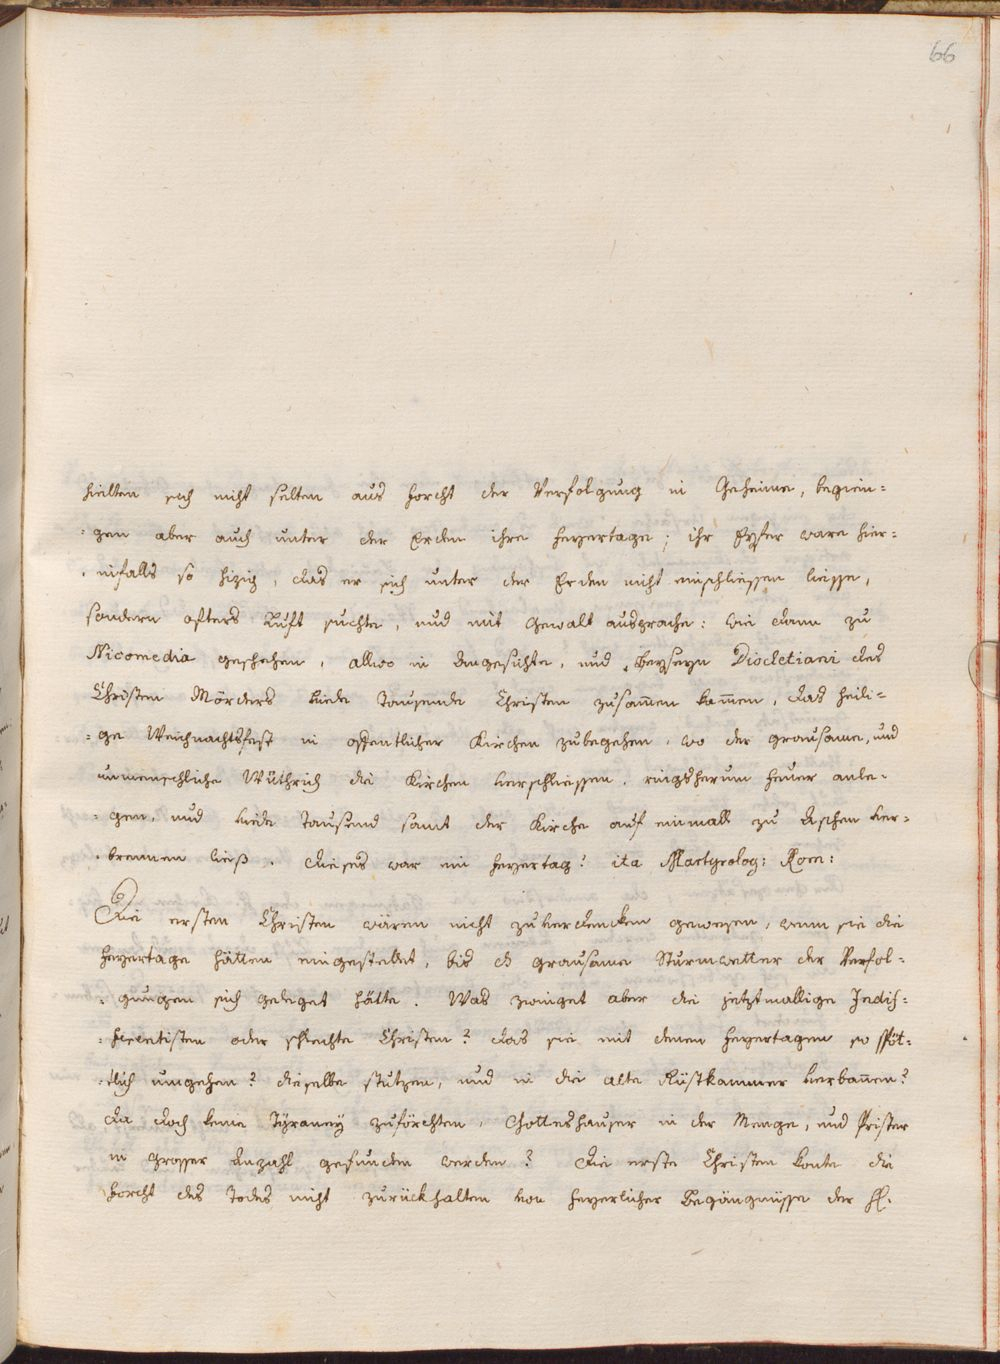 66
hielten sich nicht selten aus forcht der Verfolgung in Geheime, begien=
=gen aber auch unter der Erden ihre Feyertage; ihr Eyfer ware hier=
infalls so hizig, das er sich unter der Erden nicht einschliessen liesse,
sondern ofters Luft suchte, und mit Gewalt ausbrache: wie dann zu
Nicomedia geschehen, allwo in Angesichte, und Beyseyn Diocletiani des
Christen Mörders viele Tausende Christen zusam̄en kam̄en, das heili=
=ge Weihnachtsfest in offentlicher Kirchen zubegehen, wo der grausame, und
unmenschliche Wüthrich die Kirchen verschliessen, ringsherum Feuer anle=
=gen, und viele Tausend samt der Kirche auf einmall zu Aschen ver=
=brennen ließ. Dieses war ein Feyertag! ita Martyrolog: Rom:
Die ersten Christen wären nicht zuverdencken gewesen, wenn sie die
Feyertage hätten eingestellet, bis d grausame Sturmwetter der Verfol=
=gungen sich geleget hätte. Was zwinget aber die jetztmallige Indif=
=ferentisten oder schlechte Christen? das sie mit denen Feyertagen so spöt=
=tlich umgehen? dieselbe stutzen, und in die alte Rüstkammer verban̄en?
da doch keine Tÿraneÿ zuförchten, Gotteshauser in der Menge, und Prister
in grosser Anzahl gefunden werden? Die erste Christen konte die
forcht des Todes nicht zurückhalten von feyerlicher Begängnüsse der H.